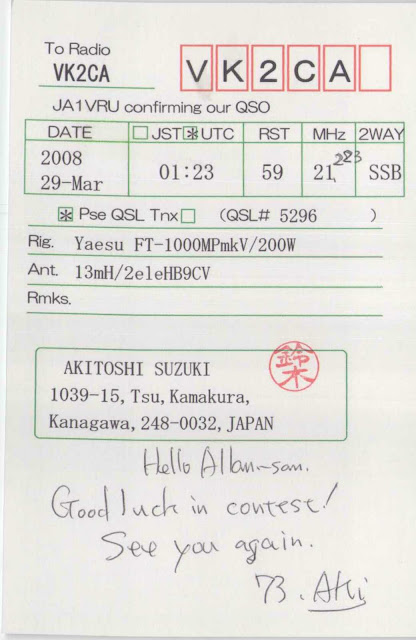 To Radio
VK2CA
VK2CA
JA1VRU confirming our QSO
DATE □JST☒UTC RST MHz 2WAY
2008
29-Mar 01:23 59 21.223 SSB
☒ Pse QSL Tnx□ (QSL# 5296 )
Rig. Yaesu FT-1000MPmkV/200W
Ant. 13mH/2eleHB9CV
Rmks.
AKITOSHI SUZUKI
鈴木
1039-15, Tsu, Kamakura,
Kanagawa, 248-0032, JAPAN
Hello Allan-san.
Good luck in contest!
See you again.
73. Aki